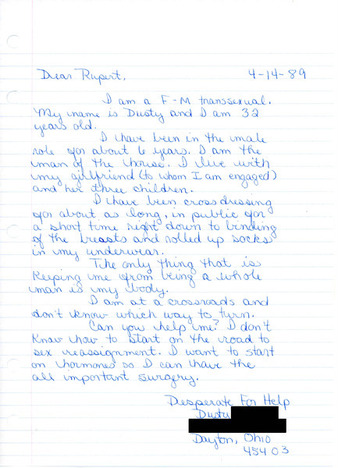 Dear Rupert, 4-14-89
I am a F-M transsexual.
My name is Dusty and I am 32
years old.
I have been in the male
role for about 6 years. I am the
man of the house. I live with
my girlfriend (to whom I am engaged)
and her three children.
I have been crossdressing
for about as long, in public for
a short time right down to binding
of the breasts and rolled up socks
in my underwear.
The only thing that is
keeping me from being a whole
man is my body.
I am at a crossroads and
don't know which way to turn.
Can you help me? I don't
know how to start on the road to
sex reassignment. I want to start
on hormones so I can have the
all important surgery.
Desperate For Help
Dusty
Dayton, Ohio
45403